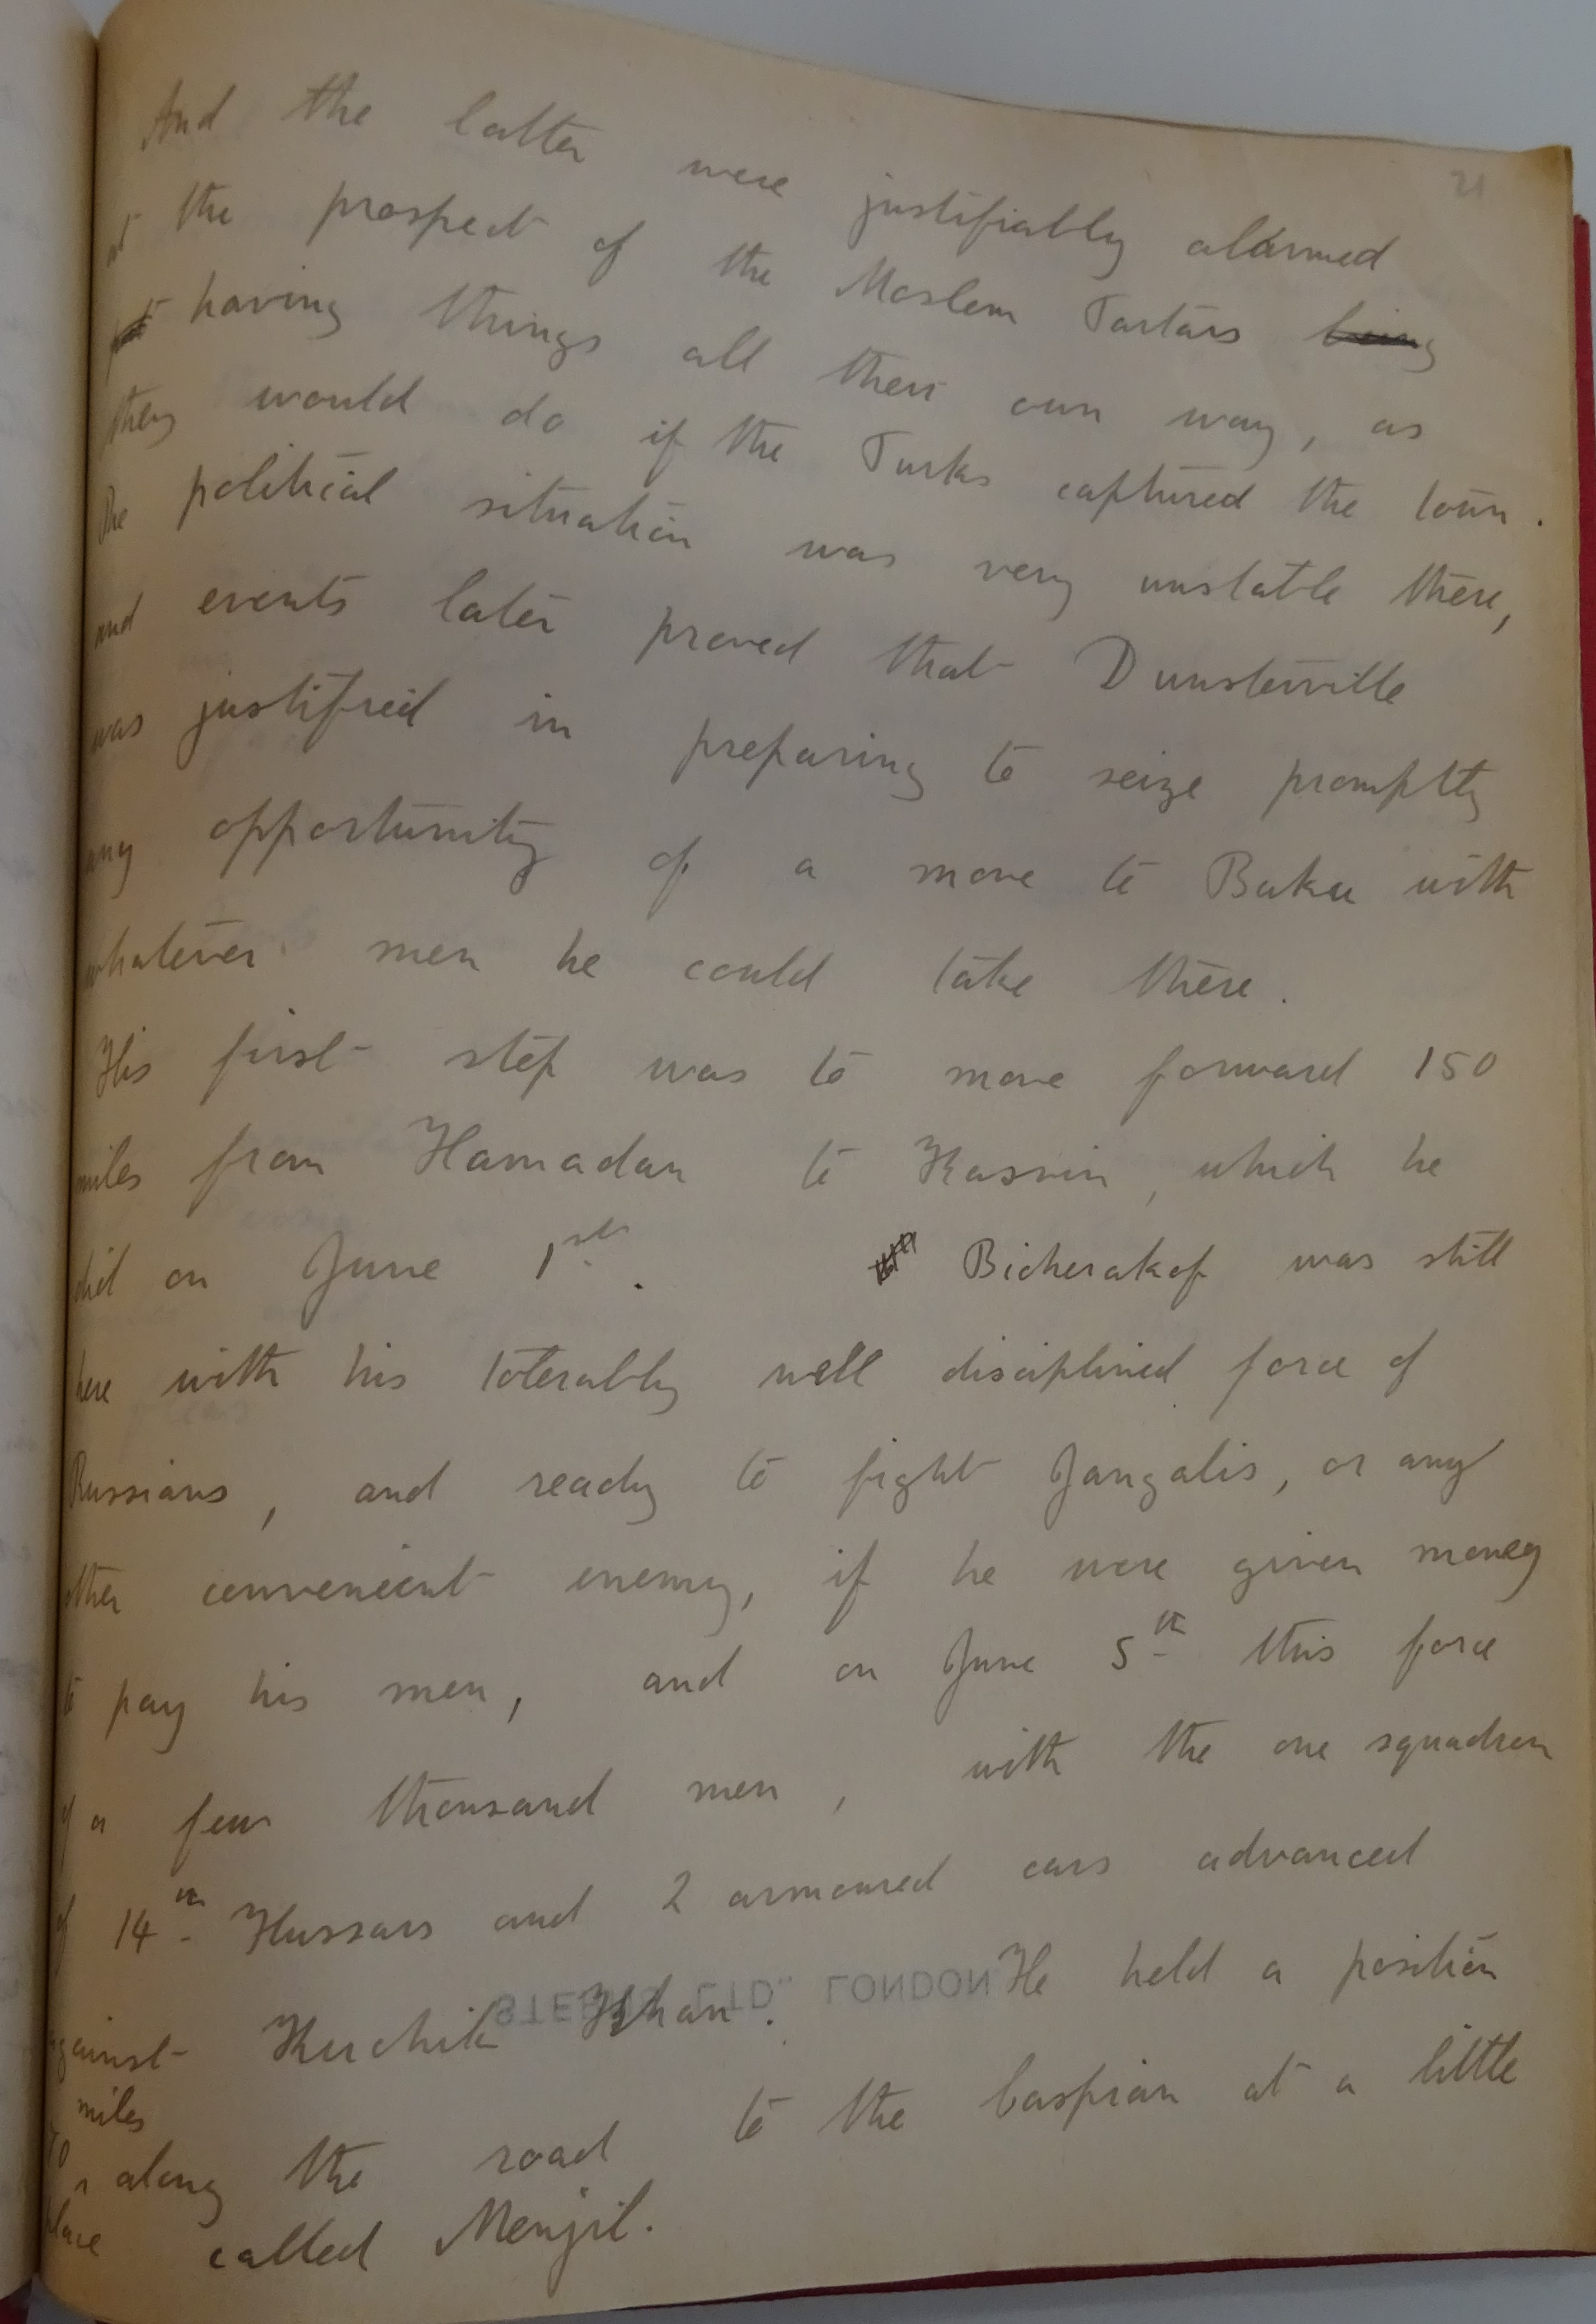 21
And the latter were justifiably alarmed
at the prospect of the Moslem Tartars being
having things all their own way, as
they would do if the Turks captured the town.
The political situation was very unstable there,
and events later proved that Dunsterville
was justified in preparing to seize promptly
any opportunity of a move to Baku with
whatever men he could take there.
His first step was to move forward 150
miles from Hamadan to Kasvin, which he
did on June 1st. Bicherakof was still
here with his tolerably well disciplined force of
Russians, and ready to fight Jangalis, or any
other convenient enemy, if he were given money
to pay his men, and on June 5th this force
of a few thousand men, with the one squadron
of 14th Hussars and 2 armoured cars advanced
against Kuchik Khan. He held a position
miles
70 along the road to the Caspian at a little
place called Menjil.
LTD., LONDON